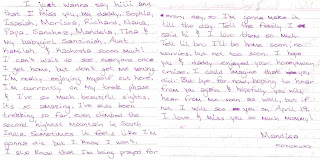 I just wanna say hiiii and
that I miss you, mu daddy, Sophia,
Isaac, Morris, Richard, Nana,
Papa, Sanchez, Mandela, Tina &
my usipini Zanziniah, Aunt
& kashasha soooo much!
I can't wait to see everyone once
I get home, but don't get me wrong
I'm really enjoying myself out here.
I'm currently on my break phase
& I've so much beautiful sights,
its so amazing. I've also been
trekking so far, even climbed the
second highest mountain in South
India. Sometimes it feels like I'm
gonna die but I know I won't.
I also know that I'm being prayed for
every day, so I'm gonna make it
all the day. Tell the family I
said hi & I love them so much.
Tell lil bro I'll be home soon, no
worries, but not too soon. I hope
you & daddy enjoyed your honeymoon/
cruise. I could imagine that you
did. Bye bye for now, hoping to hear
from ya again & hopefully you will
hear from me soon as well, but if
not I will see you in April.
I love & Miss you so much Mommy!
Mandisa